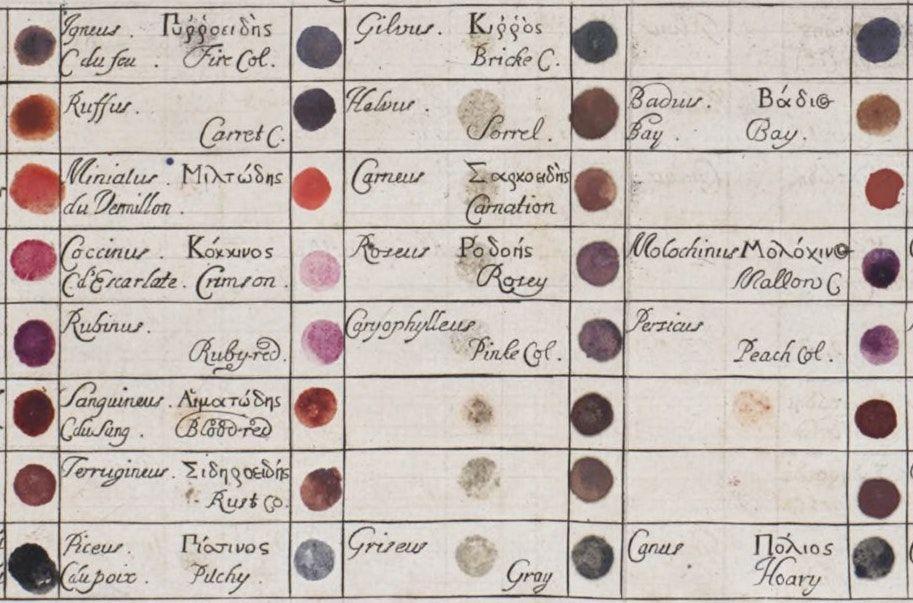 Igneus. Πυῤῥοειδὴς
C du feu. Fire Col.
Gilvus. Κιῤῥὸς
Bricke C.
Ruffus.
Carret C.
Helvus.
Sorrel.
Badius. Βάδιος
Bay. Bay.
Miniatus Μιλτώδης
du Vermillon.
Carneus. Σαρκοειδὴς
Carnation
Coccinus. Κόκκινος
C d'Escarlate. Crimson.
Roseus Ροδοής
Rosey
Molochinus Μολόχινος
Mallow C
Rubinus.
Ruby-red.
Caryophylleus
Pinke Col.
Persicus
Peach Col.
Sanguineus. Αἱματώδης
C du Sang. Blood-red
Ferrugineus. Σιδηροειδής
Rust Co.
Piceus. Πίσσινος
C du poix. Pitchy.
Griseus
Gray
Canus Πόλιος
Hoary